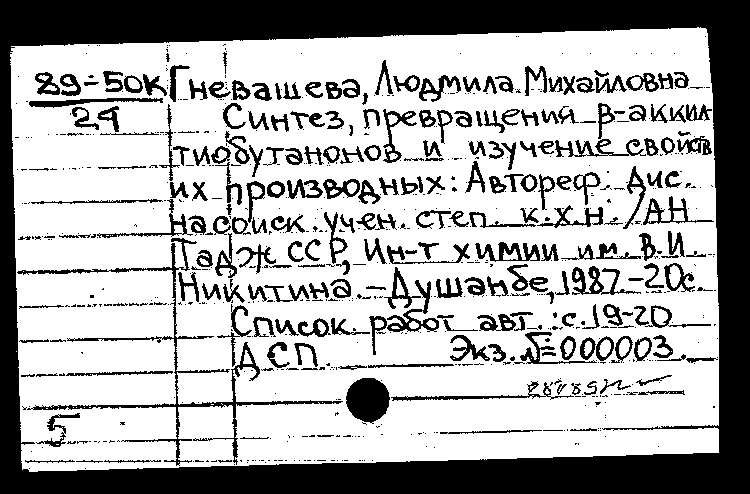 89-50К Гневашева, Людмила Михайловна
24 Синтез, превращения β-аккил
тиобутанонов и изучение свойств
их производных: Автореф. дис.
на соиск. учен. степ. к.х.н. /АН
ТаджССР, Ин-т химии им. В.И.
Никитина. - Душанбе, 1987. - 20с.
Список работ авт.: с. 19-20
ДСП. Экз. №=000003.
5